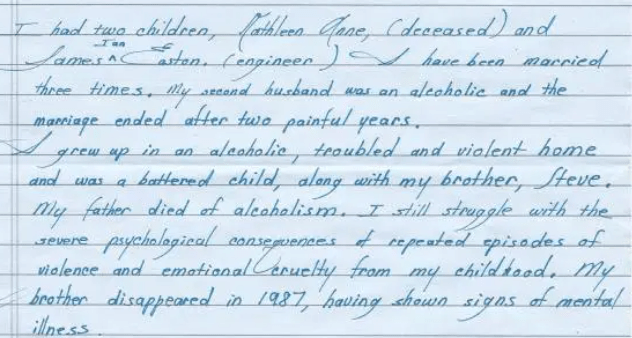 I had two children, Kathleen Anne, (deceased) and
James ^Ian Easton. (engineer) I have been married
three times. My second husband was an alcoholic and the
marriage ended after two painful years.
I grew up in an alcoholic, troubled and violent home
and was a battered child, along with my brother, Steve.
My father died of alcoholism. I still struggle with the
severe psychological consequences of repeated episodes of
violence and emotional cruelty from my childhood. My
brother disappeared in 1987, having shown signs of mental
illness.